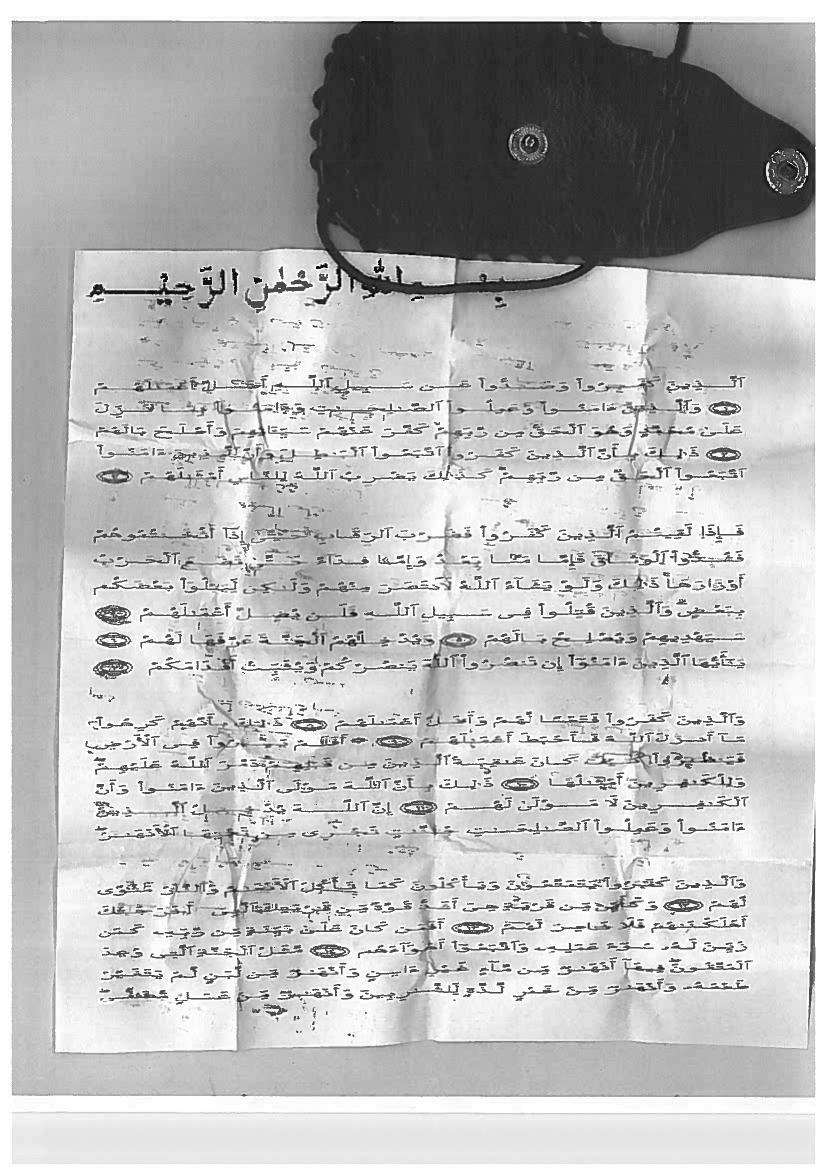 بِسْمِ اللَّهِ الرَّحْمَٰنِ الرَّحِيمِ
ٱلَّذِينَ كَفَرُوا۟ وَصَدُّوا۟ عَن سَبِيلِ ٱللَّهِ أَضَلَّ أَعْمَٰلَهُمْ
وَٱلَّذِينَ ءَامَنُوا۟ وَعَمِلُوا۟ ٱلصَّٰلِحَٰتِ وَءَامَنُوا۟ بِمَا نُزِّلَ
عَلَىٰ مُحَمَّدٍ وَهُوَ ٱلْحَقُّ مِن رَّبِّهِمْ كَفَّرَ عَنْهُمْ سَيِّـَٔاتِهِمْ وَأَصْلَحَ بَالَهُمْ
ذَٰلِكَ بِأَنَّ ٱلَّذِينَ كَفَرُوا۟ ٱتَّبَعُوا۟ ٱلْبَٰطِلَ وَأَنَّ ٱلَّذِينَ ءَامَنُوا۟
ٱتَّبَعُوا۟ ٱلْحَقَّ مِن رَّبِّهِمْ كَذَٰلِكَ يَضْرِبُ ٱللَّهُ لِلنَّاسِ أَمْثَٰلَهُمْ
فَإِذَا لَقِيتُمُ ٱلَّذِينَ كَفَرُوا۟ فَضَرْبَ ٱلرِّقَابِ حَتَّىٰٓ إِذَآ أَثْخَنتُمُوهُمْ
فَشُدُّوا۟ ٱلْوَثَاقَ فَإِمَّا مَنًّۢا بَعْدُ وَإِمَّا فِدَآءً حَتَّىٰ تَضَعَ ٱلْحَرْبُ
أَوْزَارَهَا ذَٰلِكَ وَلَوْ يَشَآءُ ٱللَّهُ لَٱنتَصَرَ مِنْهُمْ وَلَٰكِن لِّيَبْلُوَا۟ بَعْضَكُم
بِبَعْضٍ وَٱلَّذِينَ قُتِلُوا۟ فِى سَبِيلِ ٱللَّهِ فَلَن يُضِلَّ أَعْمَٰلَهُمْ
سَيَهْدِيهِمْ وَيُصْلِحُ بَالَهُمْ وَيُدْخِلُهُمُ ٱلْجَنَّةَ عَرَّفَهَا لَهُمْ
يَٰٓأَيُّهَا ٱلَّذِينَ ءَامَنُوٓا۟ إِن تَنصُرُوا۟ ٱللَّهَ يَنصُرْكُمْ وَيُثَبِّتْ أَقْدَامَكُمْ
وَٱلَّذِينَ كَفَرُوا۟ فَتَعْسًا لَّهُمْ وَأَضَلَّ أَعْمَٰلَهُمْ ذَٰلِكَ بِأَنَّهُمْ كَرِهُوا۟
مَآ أَنزَلَ ٱللَّهُ فَأَحْبَطَ أَعْمَٰلَهُمْ أَفَلَمْ يَسِيرُوا۟ فِى ٱلْأَرْضِ
فَيَنظُرُوا۟ كَيْفَ كَانَ عَٰقِبَةُ ٱلَّذِينَ مِن قَبْلِهِمْ دَمَّرَ ٱللَّهُ عَلَيْهِمْ
وَلِلْكَٰفِرِينَ أَمْثَٰلُهَا ذَٰلِكَ بِأَنَّ ٱللَّهَ مَوْلَى ٱلَّذِينَ ءَامَنُوا۟ وَأَنَّ
ٱلْكَٰفِرِينَ لَا مَوْلَىٰ لَهُمْ إِنَّ ٱللَّهَ يُدْخِلُ ٱلَّذِينَ
ءَامَنُوا۟ وَعَمِلُوا۟ ٱلصَّٰلِحَٰتِ جَنَّٰتٍ تَجْرِى مِن تَحْتِهَا ٱلْأَنْهَٰرُ
وَٱلَّذِينَ كَفَرُوا۟ يَتَمَتَّعُونَ وَيَأْكُلُونَ كَمَا تَأْكُلُ ٱلْأَنْعَٰمُ وَٱلنَّارُ مَثْوًى
لَّهُمْ وَكَأَيِّن مِّن قَرْيَةٍ هِىَ أَشَدُّ قُوَّةً مِّن قَرْيَتِكَ ٱلَّتِىٓ أَخْرَجَتْكَ
أَهْلَكْنَٰهُمْ فَلَا نَاصِرَ لَهُمْ أَفَمَن كَانَ عَلَىٰ بَيِّنَةٍ مِّن رَّبِّهِۦ كَمَن
زُيِّنَ لَهُۥ سُوٓءُ عَمَلِهِۦ وَٱتَّبَعُوٓا۟ أَهْوَآءَهُم مَّثَلُ ٱلْجَنَّةِ ٱلَّتِى وُعِدَ
ٱلْمُتَّقُونَ فِيهَآ أَنْهَٰرٌ مِّن مَّآءٍ غَيْرِ ءَاسِنٍ وَأَنْهَٰرٌ مِّن لَّبَنٍ لَّمْ يَتَغَيَّرْ
طَعْمُهُۥ وَأَنْهَٰرٌ مِّنْ خَمْرٍ لَّذَّةٍ لِّلشَّٰرِبِينَ وَأَنْهَٰرٌ مِّنْ عَسَلٍ مُّصَفًّى